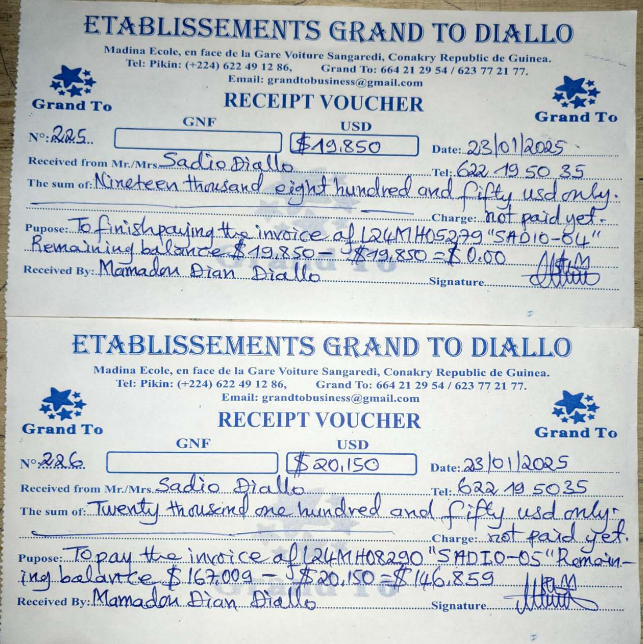 ETABLISSEMENTS GRAND TO DIALLO
Madina Ecole, en face de la Gare Voiture Sangaredi, Conakry Republic de Guinea.
Tel: Pikin: (+224) 622 49 12 86, Grand To: 664 21 29 54 / 623 77 21 77.
Email: grandtobusiness@gmail.com
Grand To RECEIPT VOUCHER Grand To
GNF USD
N°: 225 $19,850 Date: 23/01/2025
Received from Mr./Mrs. Sadio Diallo Tel: 622 19 50 35
The sum of: Nineteen thousand eight hundred and fifty usd only.
Charge: not paid yet.
Pupose: To finish paying the invoice of L24MH05279 "SADIO-04"
Remaining balance $19,850 - $19,850 = $0.00
Received By: Mamadou Dian Diallo Signature
Grand To
ETABLISSEMENTS GRAND TO DIALLO
Madina Ecole, en face de la Gare Voiture Sangaredi, Conakry Republic de Guinea.
Tel: Pikin: (+224) 622 49 12 86, Grand To: 664 21 29 54 / 623 77 21 77.
Email: grandtobusiness@gmail.com
Grand To RECEIPT VOUCHER Grand To
GNF USD
N°: 226 $20,150 Date: 23/01/2025
Received from Mr./Mrs. Sadio Diallo Tel: 622 19 50 35
The sum of: Twenty thousand one hundred and fifty usd only.
Charge: not paid yet.
Pupose: To pay the invoice of L24MH08290 "SADIO-05" Remain-
ing balance $167,009 - $20,150 = $146,859
Received By: Mamadou Dian Diallo Signature
Grand To